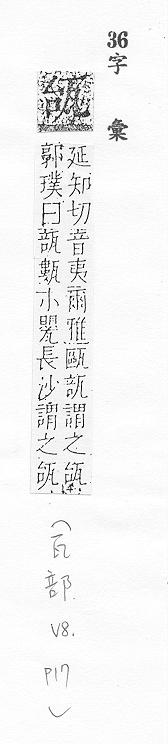 36 字彙
瓵
延知切音夷爾雅甌瓿謂之瓵
郭璞曰瓿甊小甖長沙謂之瓵
(瓦部 V8. P17)